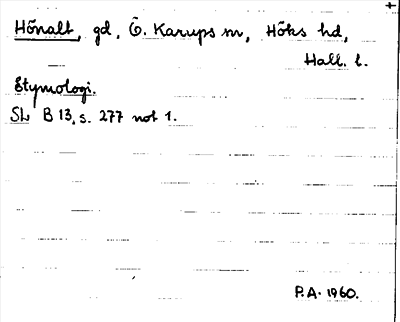 Hönalt, gd, Ö. Karups sn, Höks hd,
Hall. l.
Etymologi.
SL B 13, s. 277 not 1.
P.A. 1960.